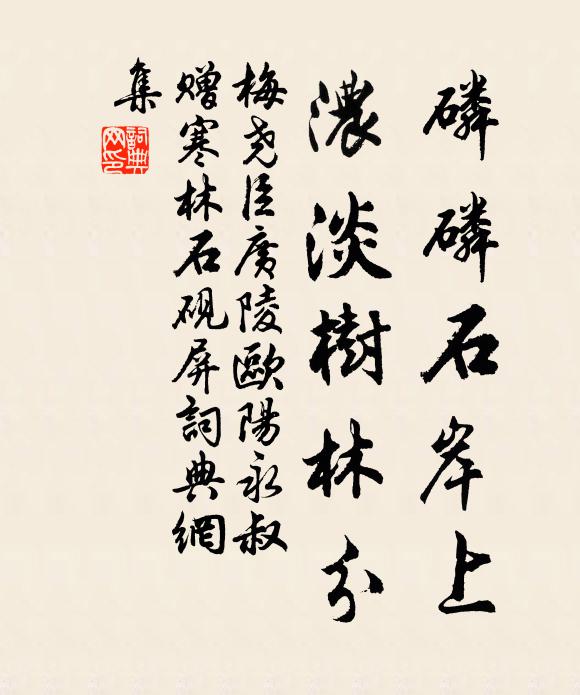 磷磷石岸上
濃淡樹林分
梅堯臣廣陵歐陽永叔
贈寒林石硯屏詞典網
集
詞典網印